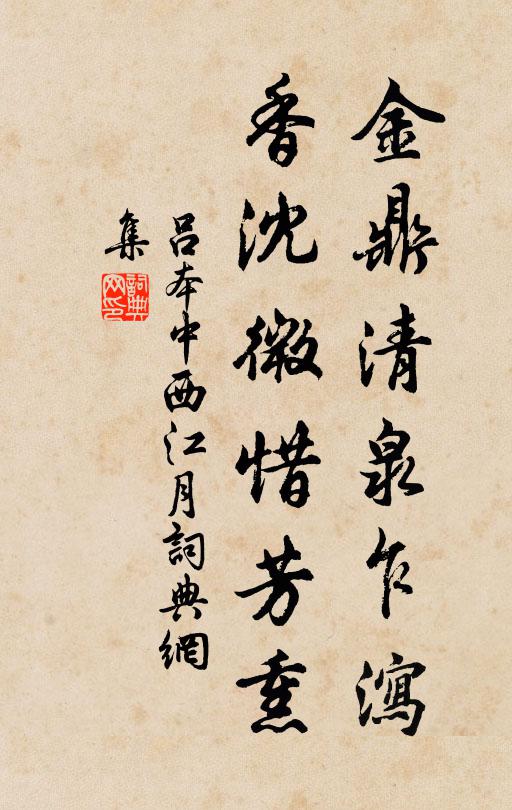 金鼎清泉乍瀉
香沈微惜芳熏
吕本中西江月詞典網
集
詞典網印